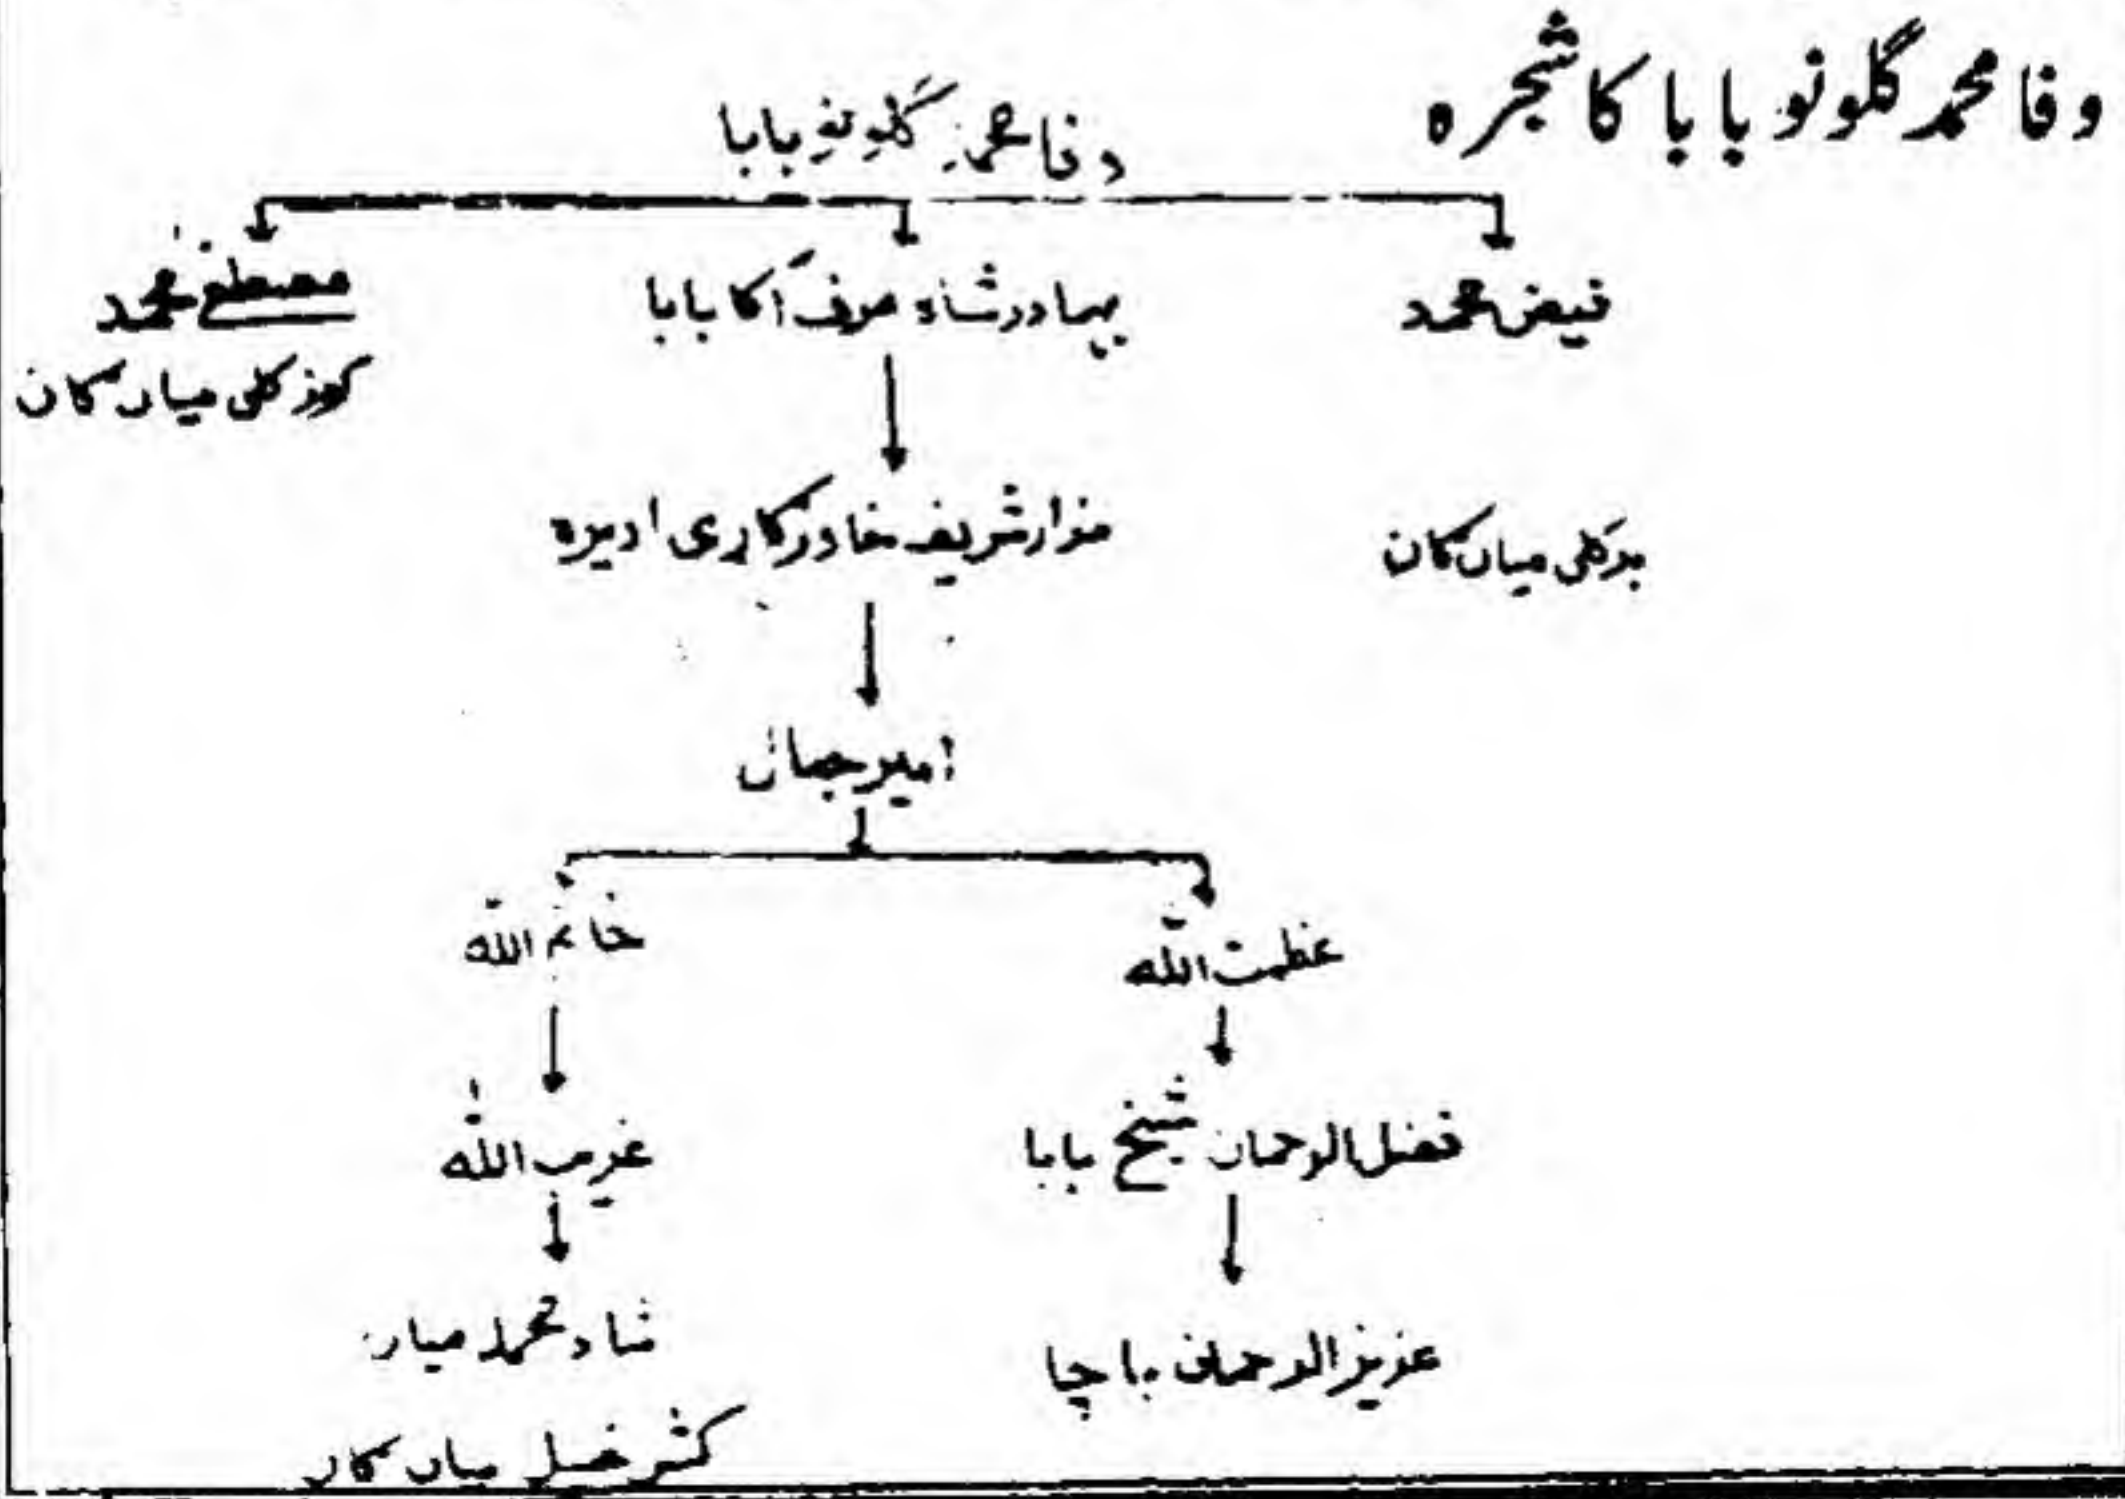 وفا محمد گلونو بابا کا شجره
وفا محمد گلونو بابا
فیض محمد
بہادر شاہ عرف آکا بابا
مصطفےٰ محمد
کوز کلی میاں گان
مزار شریف خادرگزی ادیره
بر کلی میاں گان
امیر جہاں
عظمت اللہ
خانم اللہ
فضل الرحمان شیخ بابا
غریب اللہ
عزیز الرحمان باچا
شاد محمد میاں
خیل میاں گان